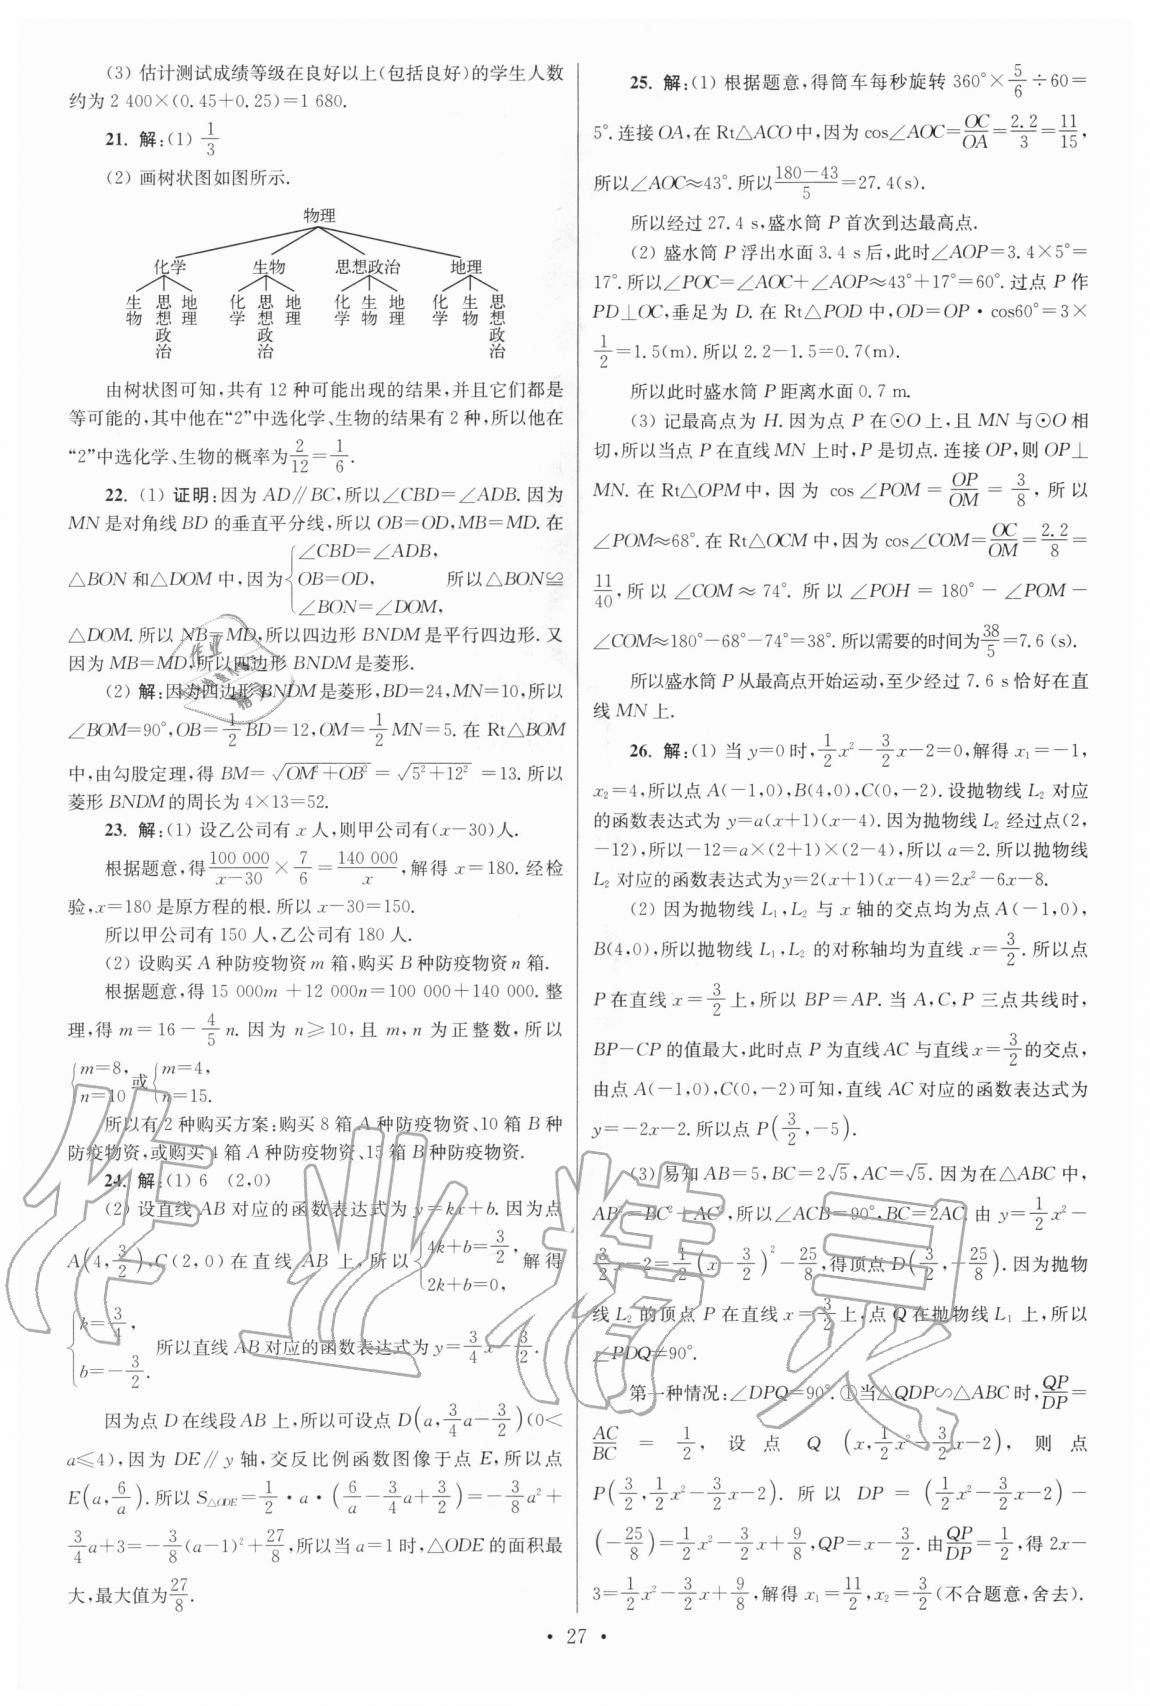 (3) 估计测试成绩等级在良好以上(包括良好)的学生人数
约为 2 400×(0.45+0.25)=1 680.
21. 解:(1) 1/3
(2) 画树状图如图所示.
物理
化学 生物 思想政治 地理
生物 思想政治 地理 化学 思想政治 地理 化学 生物 地理 化学 生物 思想政治
由树状图可知,共有 12 种可能出现的结果,并且它们都是
等可能的,其中他在“2”中选化学、生物的结果有 2 种,所以他在
“2”中选化学、生物的概率为2/12=1/6.
22. (1) 证明:因为 AD∥BC,所以∠CBD=∠ADB. 因为
MN 是对角线 BD 的垂直平分线,所以 OB=OD,MB=MD. 在
△BON 和△DOM 中,因为{∠CBD=∠ADB, OB=OD, ∠BON=∠DOM, 所以△BON≌
△DOM. 所以 NB=MD,所以四边形 BNDM 是平行四边形. 又
因为 MB=MD,所以四边形 BNDM 是菱形.
(2) 解:因为四边形 BNDM 是菱形,BD=24,MN=10,所以
∠BOM=90°,OB=1/2BD=12,OM=1/2MN=5. 在 Rt△BOM
中,由勾股定理,得 BM=√(OM²+OB²)=√(5²+12²)=13. 所以
菱形 BNDM 的周长为 4×13=52.
23. 解:(1) 设乙公司有 x 人,则甲公司有(x−30)人.
根据题意,得100 000/(x−30)×7/6=140 000/x,解得 x=180. 经检
验,x=180 是原方程的根. 所以 x−30=150.
所以甲公司有 150 人,乙公司有 180 人.
(2) 设购买 A 种防疫物资 m 箱,购买 B 种防疫物资 n 箱.
根据题意,得 15 000m+12 000n=100 000+140 000. 整
理,得 m=16−4/5n. 因为 n≥10,且 m,n 为正整数,所以
{m=8, n=10 或{m=4, n=15.
所以有 2 种购买方案:购买 8 箱 A 种防疫物资、10 箱 B 种
防疫物资,或购买 4 箱 A 种防疫物资、15 箱 B 种防疫物资.
24. 解:(1) 6 (2,0)
(2) 设直线 AB 对应的函数表达式为 y=kx+b. 因为点
A(4,3/2),C(2,0)在直线 AB 上,所以{4k+b=3/2, 2k+b=0, 解得
{k=3/4, b=−3/2. 所以直线 AB 对应的函数表达式为 y=3/4x−3/2.
因为点 D 在线段 AB 上,所以可设点 D(a,3/4a−3/2)(0<
a≤4),因为 DE∥y 轴,交反比例函数图像于点 E,所以点
E(a,6/a). 所以 S△ODE=1/2·a·(6/a−3/4a+3/2)=−3/8a²+
3/4a+3=−3/8(a−1)²+27/8,所以当 a=1 时,△ODE 的面积最
大,最大值为27/8.
25. 解:(1) 根据题意,得筒车每秒旋转 360°×5/6÷60=
5°. 连接 OA,在 Rt△ACO 中,因为 cos∠AOC=OC/OA=2.2/3=11/15,
所以∠AOC≈43°. 所以(180−43)/5=27.4(s).
所以经过 27.4 s,盛水筒 P 首次到达最高点.
(2) 盛水筒 P 浮出水面 3.4 s 后,此时∠AOP=3.4×5°=
17°. 所以∠POC=∠AOC+∠AOP≈43°+17°=60°. 过点 P 作
PD⊥OC,垂足为 D. 在 Rt△POD 中,OD=OP·cos60°=3×
1/2=1.5(m). 所以 2.2−1.5=0.7(m).
所以此时盛水筒 P 距离水面 0.7 m.
(3) 记最高点为 H. 因为点 P 在⊙O 上,且 MN 与⊙O 相
切,所以当点 P 在直线 MN 上时,P 是切点. 连接 OP,则 OP⊥
MN. 在 Rt△OPM 中,因为 cos∠POM=OP/OM=3/8,所以
∠POM≈68°. 在 Rt△OCM 中,因为 cos∠COM=OC/OM=2.2/8=
11/40,所以∠COM≈74°. 所以∠POH=180°−∠POM−
∠COM≈180°−68°−74°=38°. 所以需要的时间为38/5=7.6 (s).
所以盛水筒 P 从最高点开始运动,至少经过 7.6 s 恰好在直
线 MN 上.
26. 解:(1) 当 y=0 时,1/2x²−3/2x−2=0,解得 x₁=−1,
x₂=4,所以点 A(−1,0),B(4,0),C(0,−2). 设抛物线 L₂ 对应
的函数表达式为 y=a(x+1)(x−4). 因为抛物线 L₂ 经过点(2,
−12),所以−12=a×(2+1)×(2−4),所以 a=2. 所以抛物线
L₂ 对应的函数表达式为y=2(x+1)(x−4)=2x²−6x−8.
(2) 因为抛物线 L₁,L₂ 与 x 轴的交点均为点 A(−1,0),
B(4,0),所以抛物线 L₁,L₂ 的对称轴均为直线 x=3/2. 所以点
P 在直线 x=3/2上,所以 BP=AP. 当 A,C,P 三点共线时,
BP−CP 的值最大,此时点 P 为直线 AC 与直线 x=3/2的交点,
由点 A(−1,0),C(0,−2)可知,直线 AC 对应的函数表达式为
y=−2x−2. 所以点 P(3/2,−5).
(3) 易知 AB=5,BC=2√5,AC=√5. 因为在△ABC 中,
AB²=BC²+AC²,所以∠ACB=90°,BC=2AC. 由 y=1/2x²−
3/2x−2=1/2(x−3/2)²−25/8,得顶点 D(3/2,−25/8). 因为抛物
线 L₂ 的顶点 P 在直线 x=3/2上,点 Q 在抛物线 L₁ 上,所以
∠PDQ≠90°.
第一种情况:∠DPQ=90°. ①当△QDP∽△ABC 时,QP/DP=
AC/BC=1/2,设点 Q(x,1/2x²−3/2x−2),则点
P(3/2,1/2x²−3/2x−2). 所以 DP=(1/2x²−3/2x−2)−
(−25/8)=1/2x²−3/2x+9/8,QP=x−3/2. 由QP/DP=1/2,得 2x−
3=1/2x²−3/2x+9/8,解得 x₁=11/2,x₂=3/2(不合题意,舍去).
• 27 •
作业精灵